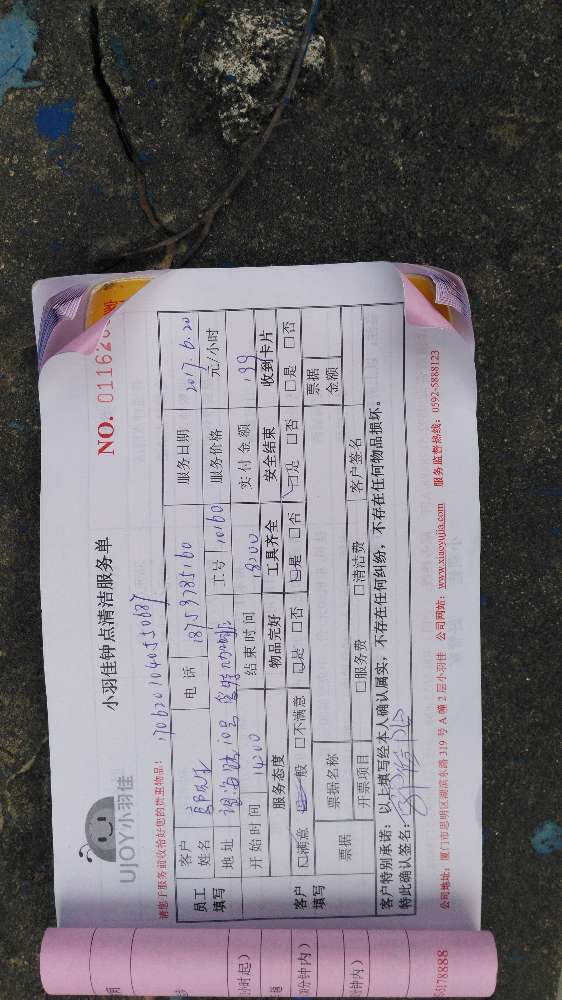 UJOY小羽佳
小羽佳钟点清洁服务单
NO. 01162
请您于服务前收拾好您的贵重物品!
1706201040550687
员工填写
客户姓名
电话 18759785160
服务日期 2017.6.20
地址
工号 10160
服务价格 元/小时
开始时间 14:00
结束时间 18:00
实付金额 199
客户填写
服务态度 物品完好 工具齐全 安全结束 收到卡片
□满意 □一般 □不满意 □是 □否 □是 □否 □是 □否 □是 □否
票据
票据名称
票据金额
开票项目 □服务费 □清洁费
客户签名
客户特别承诺:以上填写经本人确认属实,不存在任何纠纷,不存在任何物品损坏。
特此确认签名:
公司地址:厦门市思明区湖滨东路 319 号 A 幢 2 层小羽佳 公司网站:www.xiaoyujia.com 服务监督热线:0592-5888123
小时起)
分钟内)
钟内)
5178888